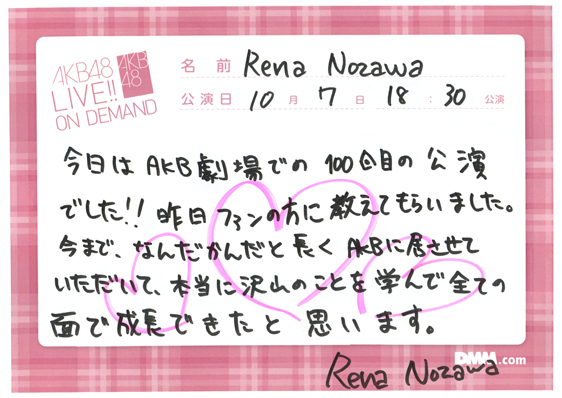 AKB48
LIVE!!
ON DEMAND
AKB
48
名前 Rena Nozawa
公演日 10月 7日 18:30 公演
今日は AKB劇場での 100回目の 公演
でした!! 昨日 ファンの方に 教えてもらいました。
今まで、なんだかんだと長く AKBに居させて
いただいて、本当に沢山のことを 学んで全ての
面で成長できたと 思います。
DMM.com
Rena Nozawa